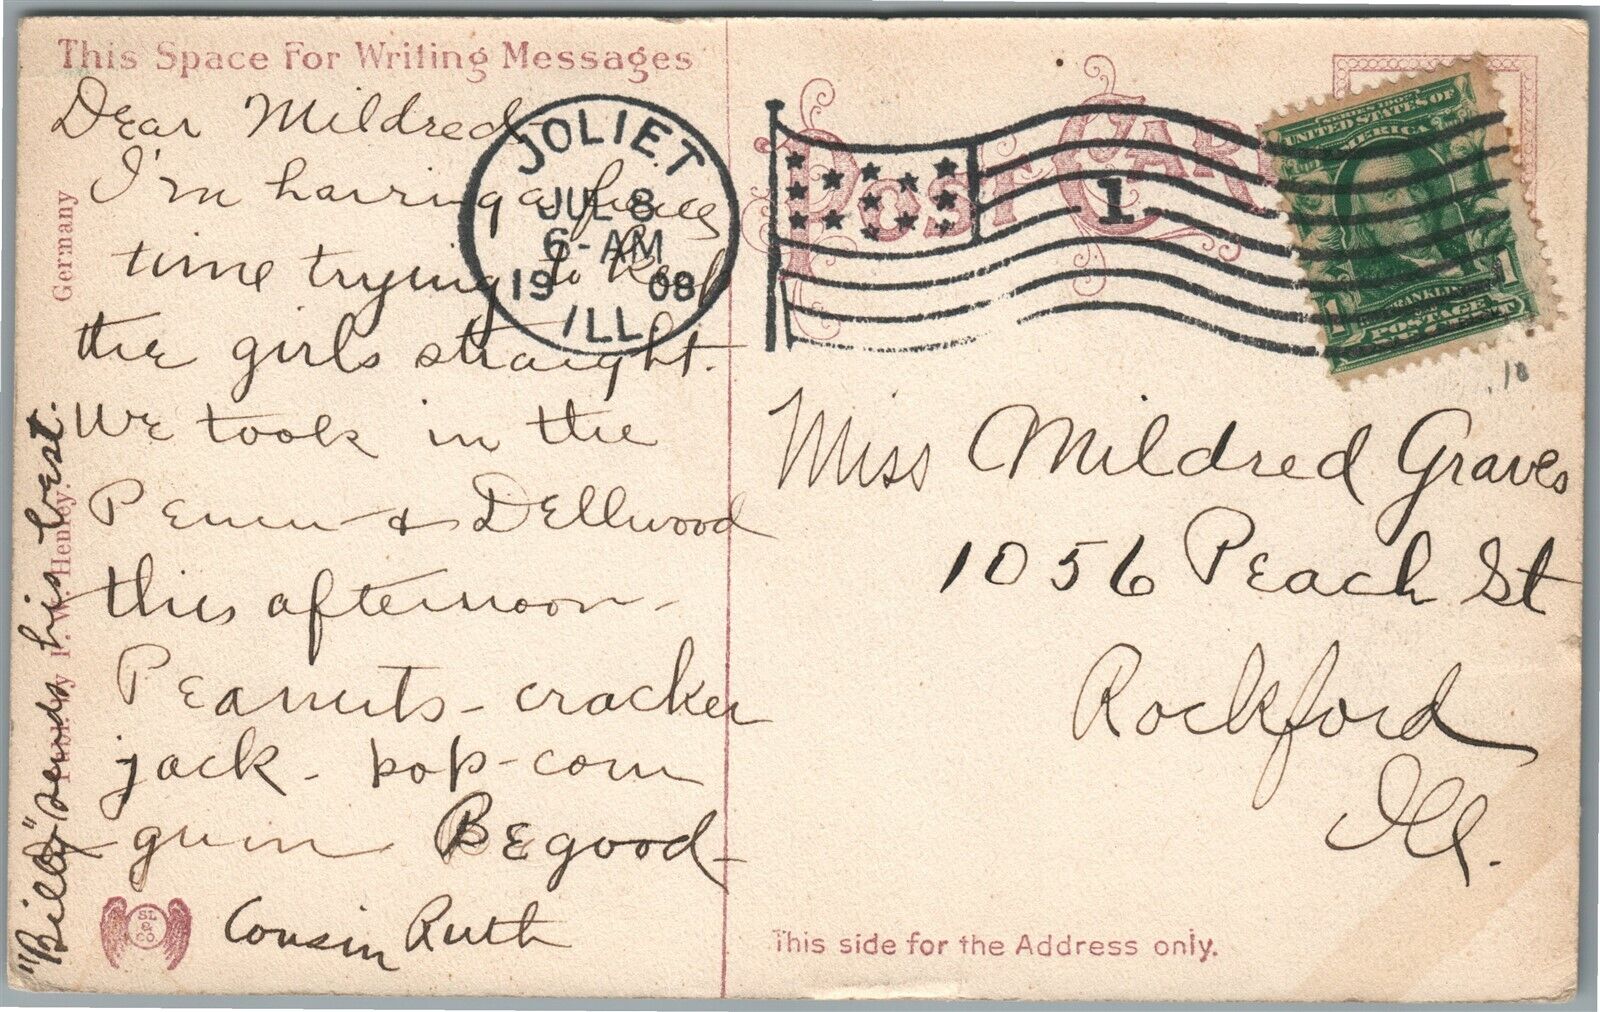 This Space For Writing Messages
Dear Mildred
I'm having a fine
time trying to keep
the girls straight.
We took in the
Penn & Dellwood
this afternoon -
Peanuts - cracker
jack - pop-corn
gum Be good -
Cousin Ruth
"Billy" sends his best.
Germany
Publ. by I. W. Henley.
SL
&
CO
JOLIET
JUL 8
6-AM
1908
ILL
1
POST CARD
SERIES 1902
UNITED STATES OF
AMERICA
FRANKLIN
1 1
POSTAGE
Miss Mildred Graves
1056 Peach St
Rockford
Ill.
This side for the Address only.